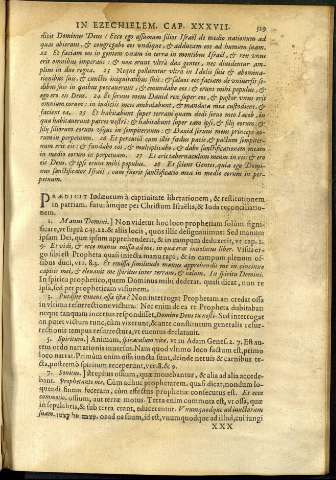 IN EZECHIELEM. CAP. XXXVII.
dicit Dominus Deus: Ecce ego assumam filios Israël de medio nationum ad
quas abierunt, & congregabo eos undique, & adducam eos ad humum suam.
22 Et faciam eos in gentem unam in terra in montibus Israël, & rex unus
erit omnibus imperans: & non erunt ultra duæ gentes, nec dividentur am-
plius in duo regna. 23 Neque polluentur ultra in idolis suis & abomina-
tionibus suis, & cunctis iniquitatibus suis: & salvos eos faciam de universis se-
dibus suis in quibus peccaverunt, & emundabo eos, & erunt mihi populus, &
ego ero eis Deus. 24 Et servus meus David rex super eos, & pastor unus erit
omnium eorum: in iudiciis meis ambulabunt, & mandata mea custodient, &
facient ea. 25 Et habitabunt super terram quam dedi servo meo Iacob, in
qua habitaverunt patres vestri: & habitabunt super eam ipsi, & filii eorum, &
filij filiorum eorum usque in sempiternum: & David servus meus princeps eo-
rum in perpetuum. 26 Et percutiam illis fœdus pacis, & pactum sempiternum
erit eis: & fundabo eos, & multiplicabo, & dabo sanctificationem meam
in medio eorum in perpetuum. 27 Et erit tabernaculum meum in eis: & ero
eis Deus, & ipsi erunt mihi populus. 28 Et scient Gentes, quia ego Domi-
nus sanctificator Israël, cum fuerit sanctificatio mea in medio eorum in per-
petuum.
PRÆDICIT Iudæorum à captivitate liberationem, & restitutionem
in patriam. fatur simque per Christum Israëlis, & Iuda reconciliatio-
nem.
1. Manus Domini.] Non videtur hoc loco prophetiam solùm signifi-
care, ut suprà c.33.22. & aliis locis, quos illic designavimus: Sed manum
ipsam Dei, quæ ipsum apprehenderit, & in campum deduxerit, ut cap.2.
9. Et vidi, & ecce manus missa ad me, in qua erat involutus liber. Visibiliter
eo ipsi est Propheta quasi iniecta manu rapi, & in campum plenum os-
sibus duci, ut c.8.3. Et emissa similitudo manus apprehendit me in cincinno
capitis mei, & elevavit me spiritus inter terram, & cælum. In spiritu Domini.
In spiritu prophetico, quem Dominus mihi dederat, quasi dicat, non re
ipsa, sed per propheticam visionem.
3. Putasne vivent ossa ista?] Non interrogat Prophetam an credat ossa
in vltima resurrectione victura. Nec enim de ea re Propheta dubitabat
neque tanquam incertus respondisset, Domine Deus tu nosti. Sed interrogat
an putet victura tunc, cùm vixerunt, & ante constitutum generalis resur-
rectionis tempus resurrectura, ut eventus declaravit.
5. Spiritum.] Animam, spiraculum vitæ, ut in Adam Genes.2.7. Est au-
tem ordo narrationis inversus. Nam quod vltimo loco factum est, primo
loco narrat. Primùm enim ossa iuncta sunt, deinde nervis & carnibus te-
cta, postremò spiritum receperunt, ver.8. & 9.
7. Sonitus.] Strepitus ossium, quæ movebantur, & alia ad alia accede-
bant. Prophetante me. Cùm adhuc prophetarem, quasi dicat, nondum lo-
quendi finem feceram, cùm effectus prophetiæ consecutus est. Et ecce
commotio, ossium, aut terræ motus. Terra enim commota est, ut ossa, quæ
in sepulchris, & sub terra erant, educerentur. Vnumquodque ad iuncturam
suam.
XXX